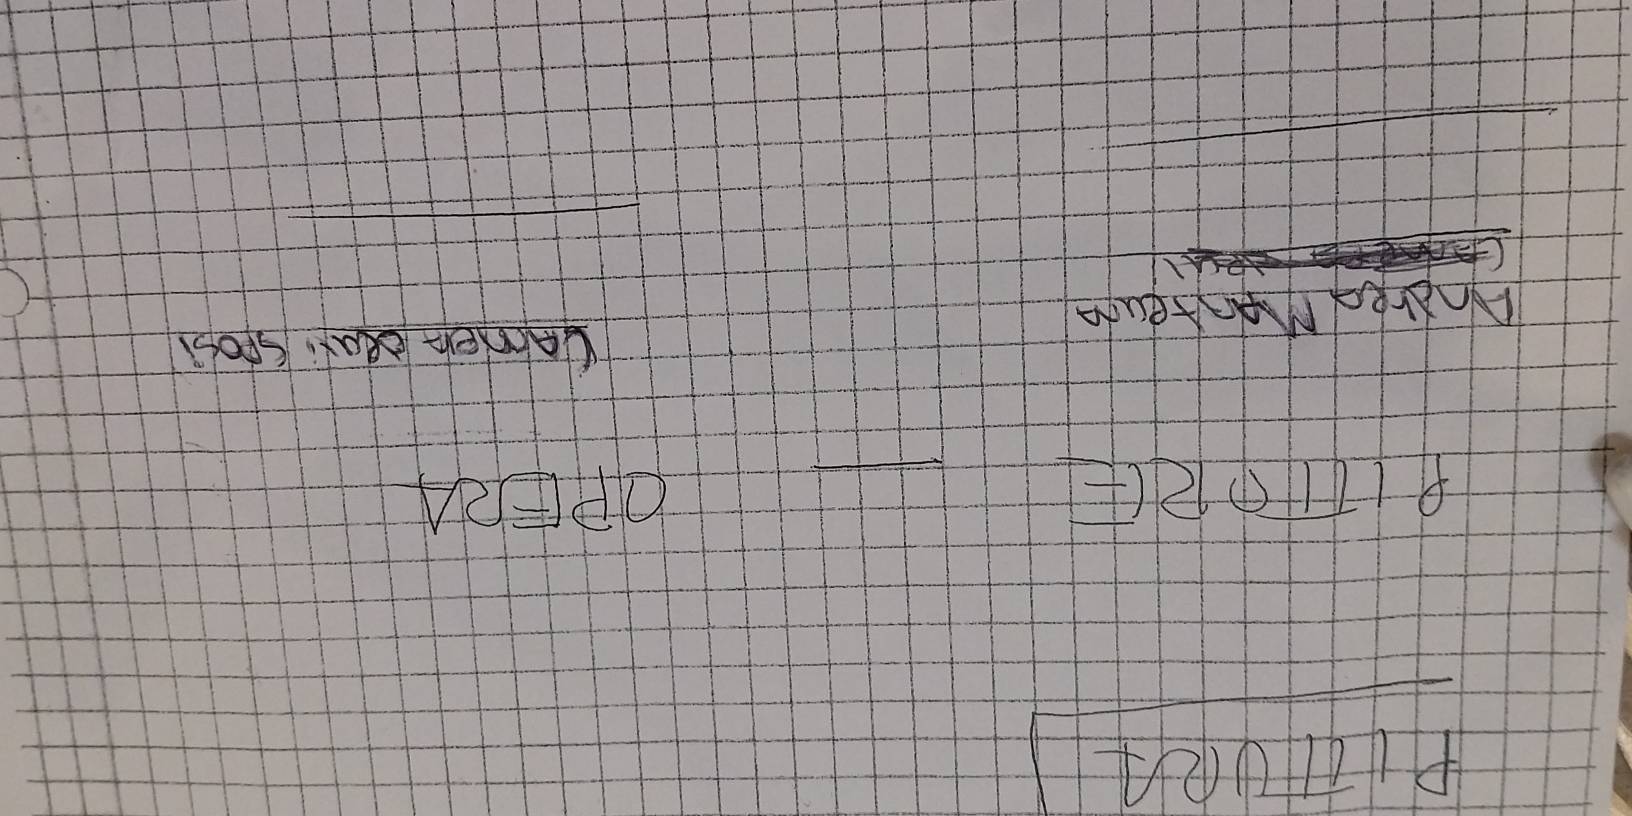 PITTURA
PITTORE — OPERA
Andrea Mantegna
CAmera degli SPOSI